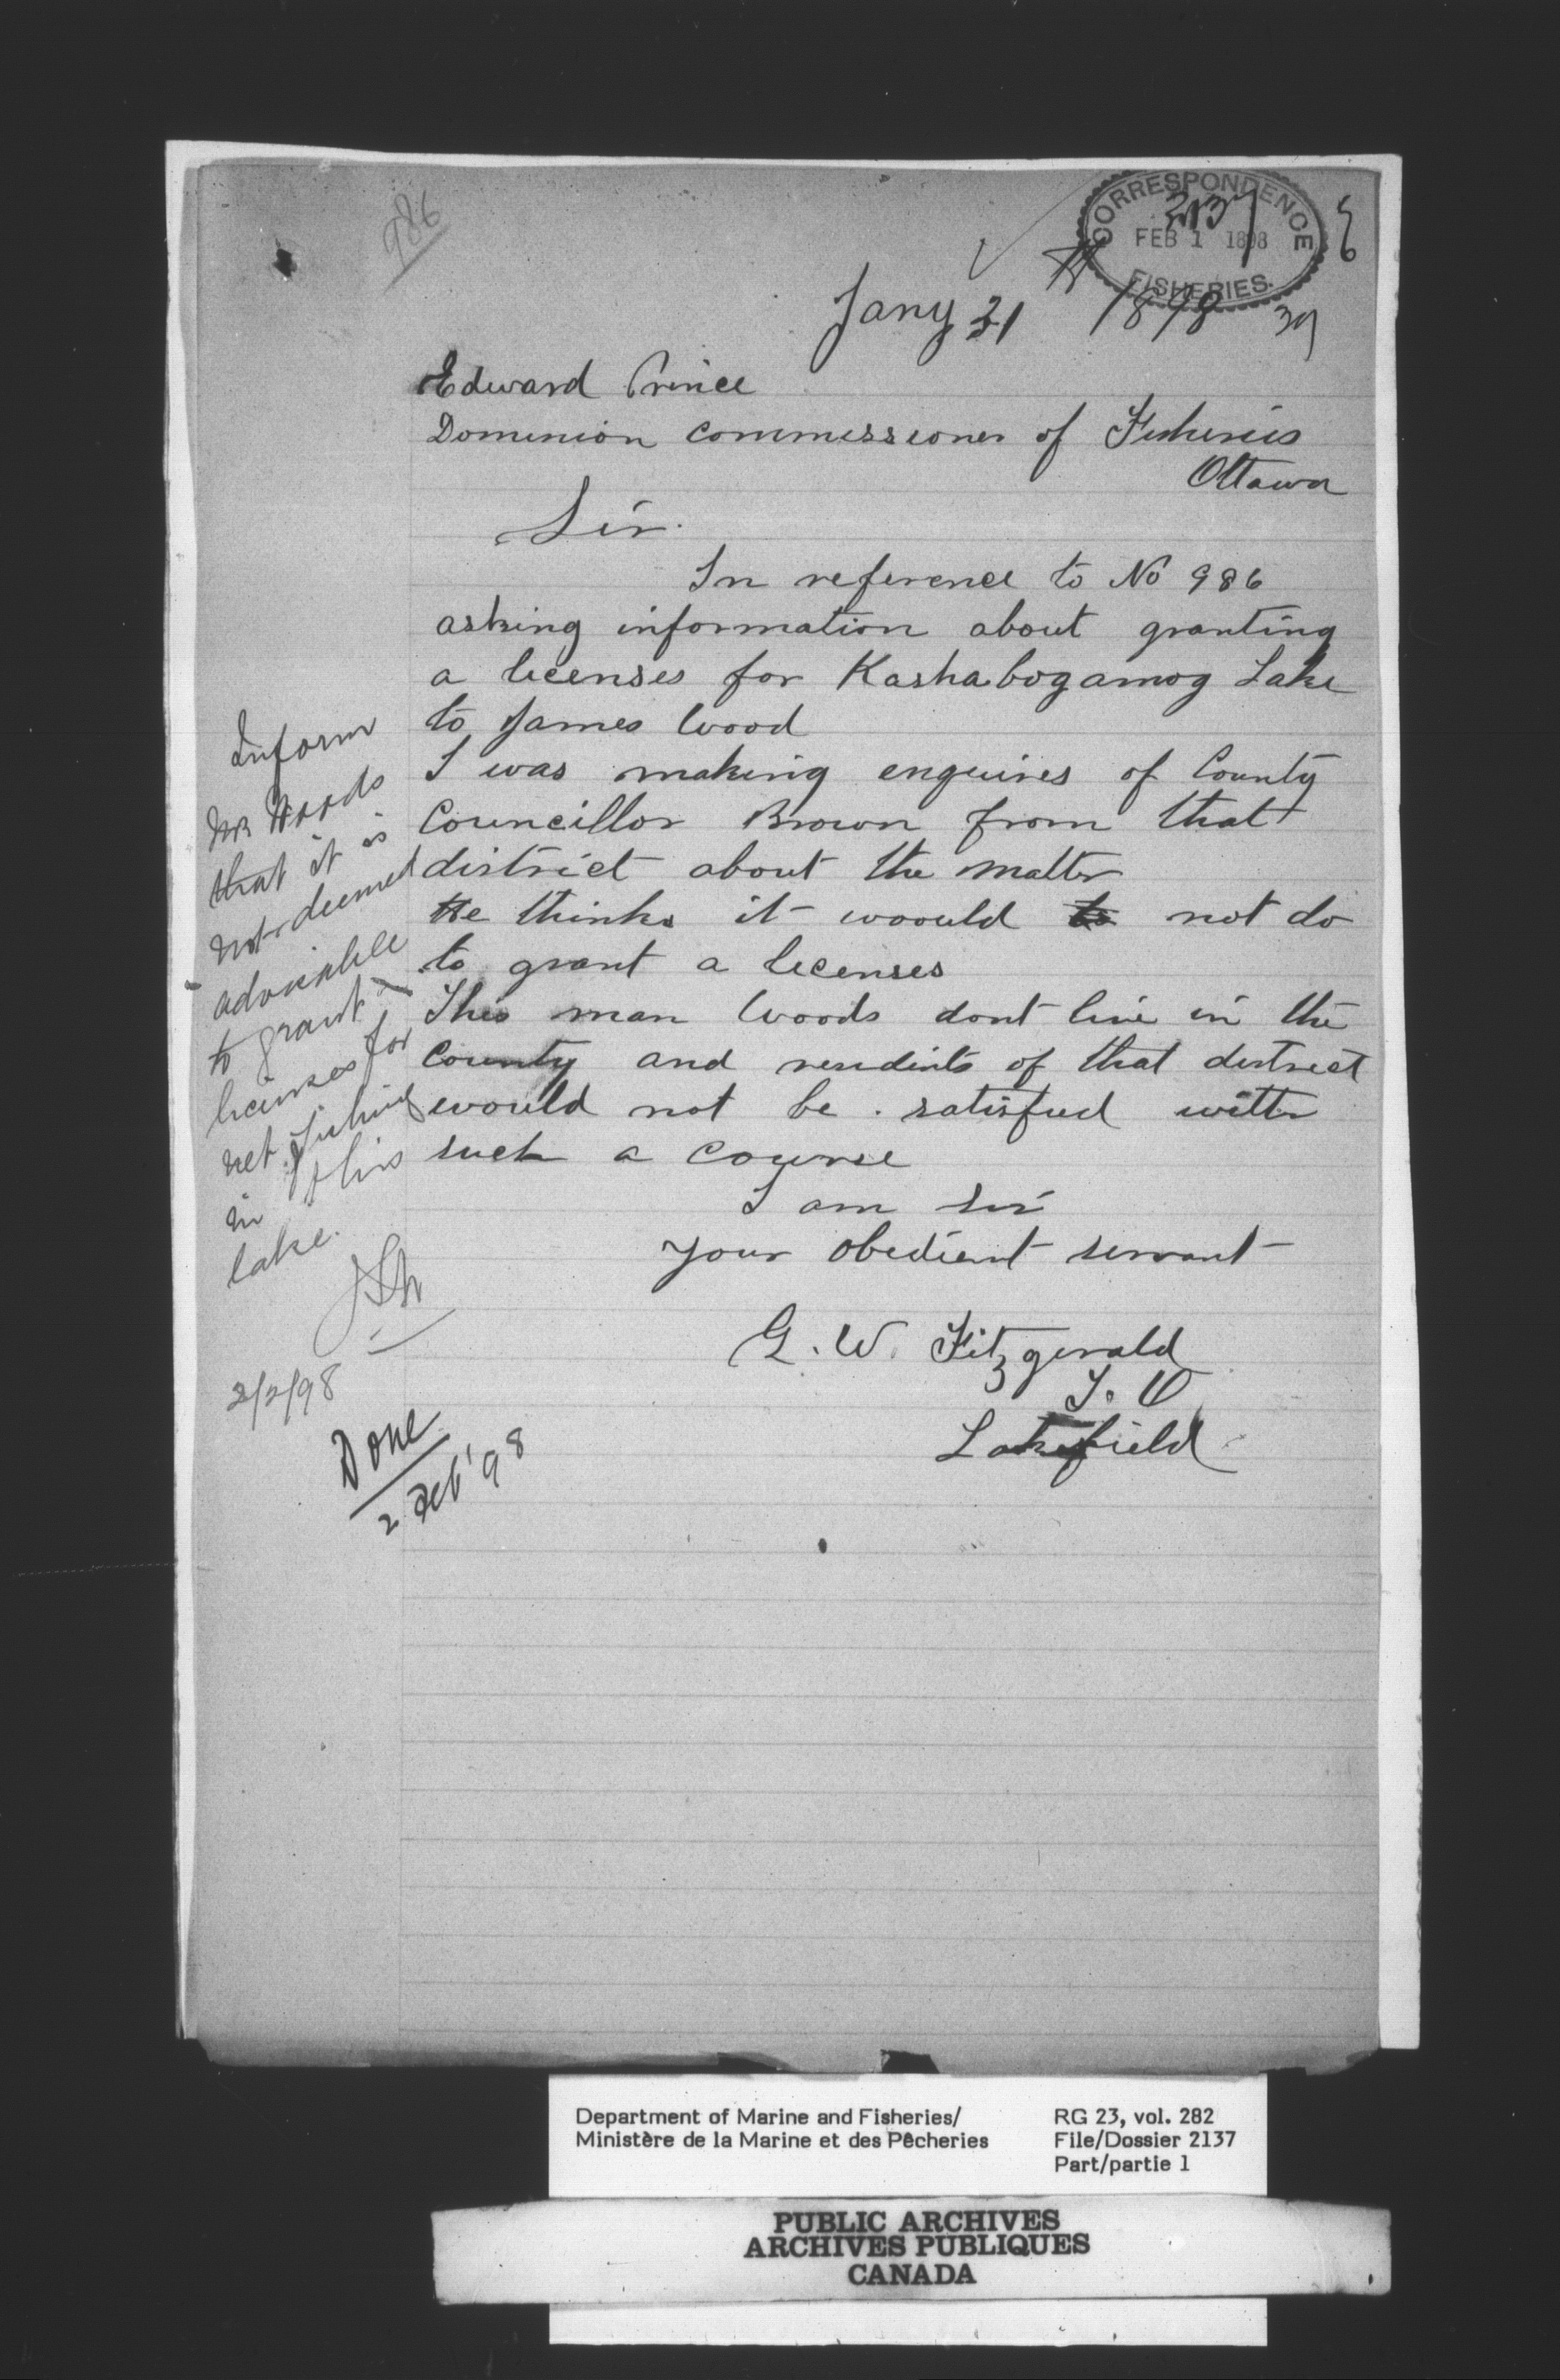 986
CORRESPONDENCE
2137
FEB 1 1898
FISHERIES.
Jany 31 1898
Edward Prince
Dominion Commissioner of Fisheries
Ottawa
Sir.
In reference to No 986
asking information about granting
a licenses for Kashabogamog Lake
to James Wood
I was making enquires of County
Councillor Brown from that
district about the matter
He thinks it woould to not do
to grant a licenses
This man Woods dont live in the
County and residents of that district
would not be satisfied with
such a course
I am Sir
your obedient servant
G. W. Fitzgerald
Lakefield
Inform
Mr Woods
that it is
not deemed
advisable
to grant
licenses for
net fishing
in this
lake.
2/2/98
Done
2 Feb '98
Department of Marine and Fisheries/
Ministère de la Marine et des Pêcheries
RG 23, vol. 282
File/Dossier 2137
Part/partie 1
PUBLIC ARCHIVES
ARCHIVES PUBLIQUES
CANADA